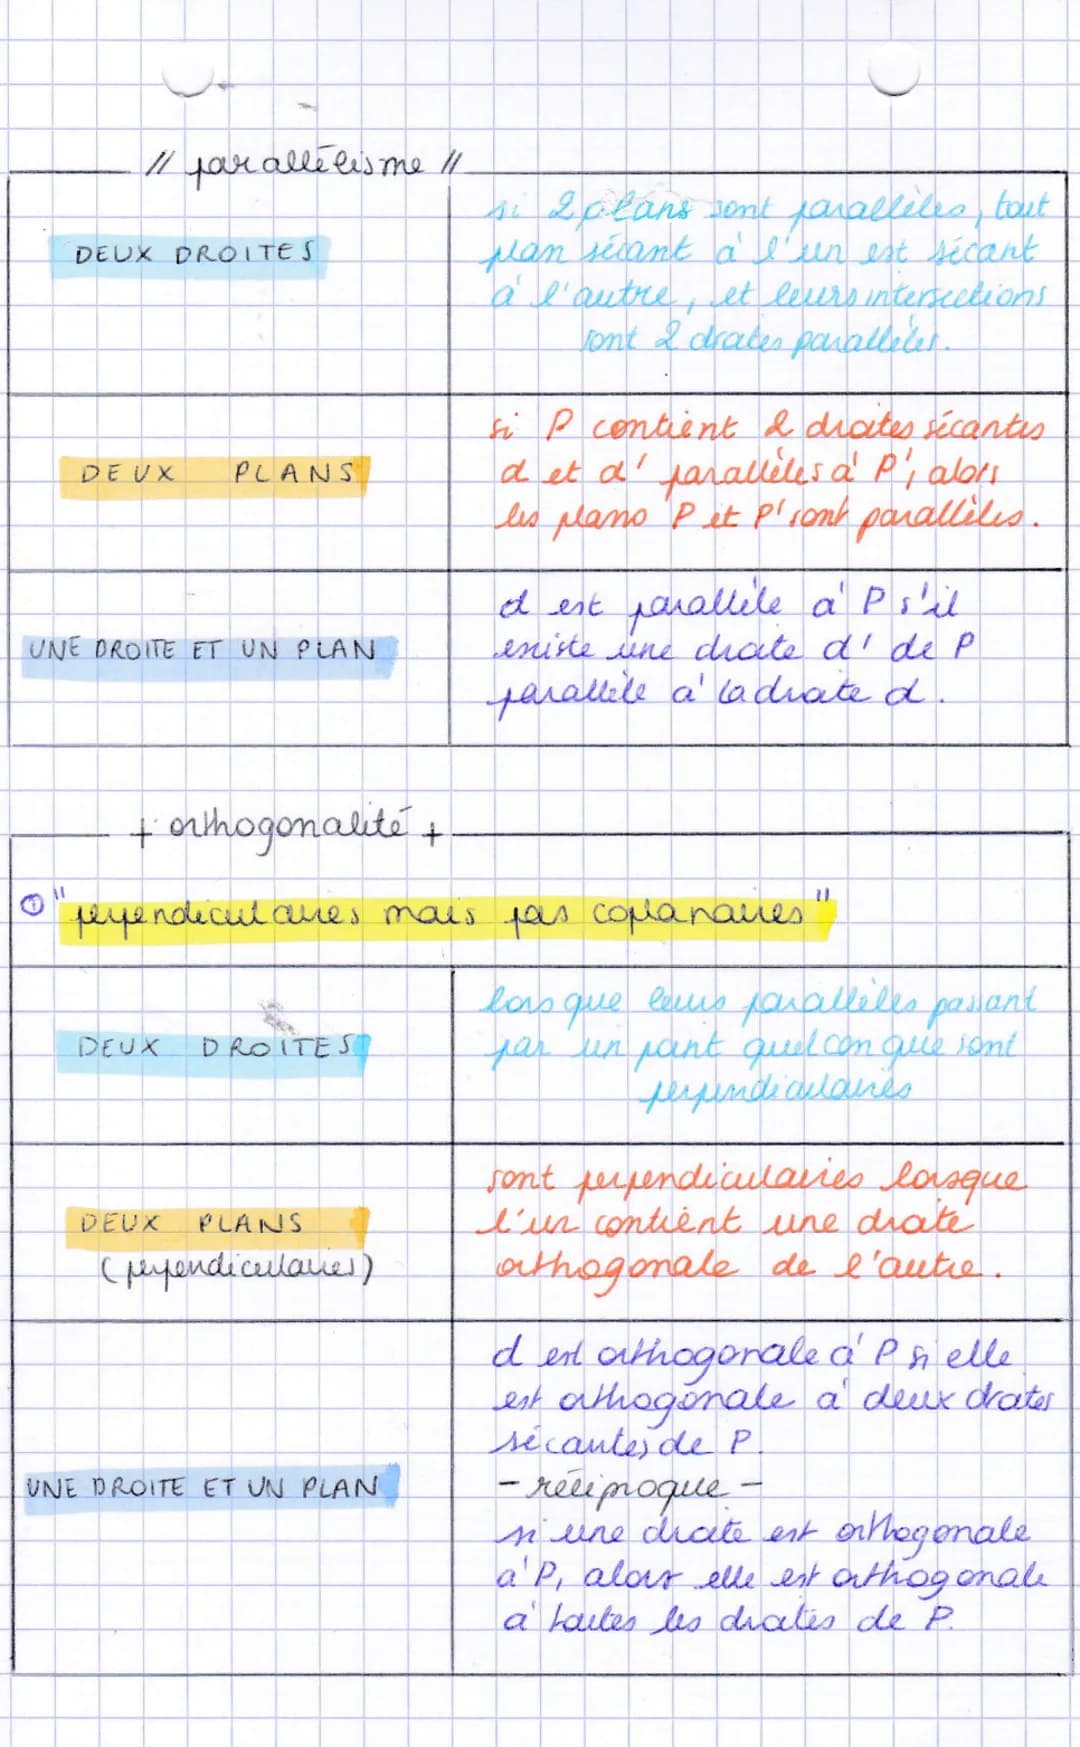 // parallélisme //
DEUX DROITES
si 2 plans sont parallèles, tout
plan sécant à l'un est sécant
à l'autre, et leurs intersections
sont 2 droites parallèles.
DEUX PLANS
si P contient 2 droites sécantes
d et d' parallèles à P', alors
les plans P et P' sont parallèles.
UNE DROITE ET UN PLAN
d est parallèle à P s'il
existe une droite d' de P
parallèle à la droite d.
+ orthogonalité +
① "perpendiculaires mais pas coplanaires"
DEUX DROITES
lorsque leurs parallèles passant
par un point quelconque sont
perpendiculaires
DEUX PLANS
(perpendiculaires)
sont perpendiculaires lorsque
l'un contient une droite
orthogonale de l'autre.
UNE DROITE ET UN PLAN
d est orthogonale à P si elle
est orthogonale à deux droites
sécantes de P.
- réciproque -
si une droite est orthogonale
à P, alors elle est orthogonale
à toutes les droites de P.